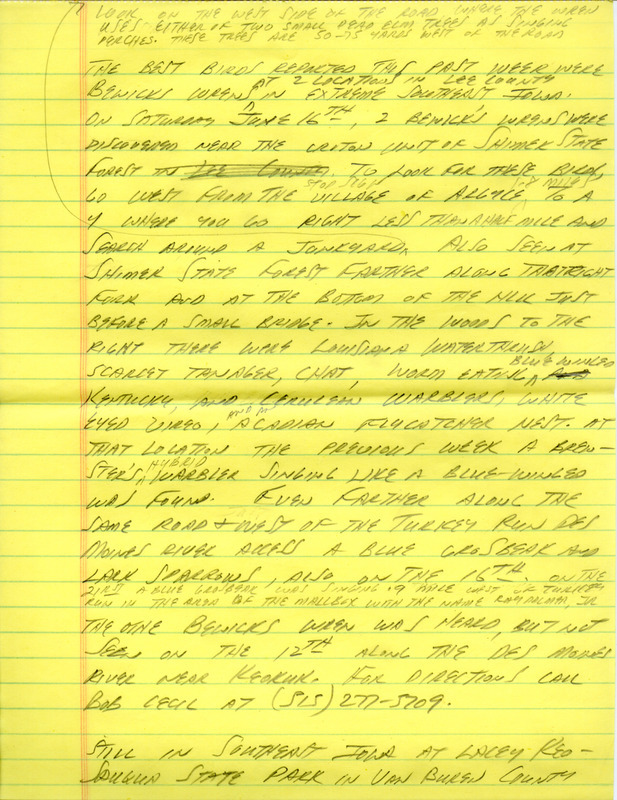 LOOK ON THE WEST SIDE OF THE ROAD WHERE THE WREN
USES EITHER OF TWO SMALL DEAD ELM TREES AS SINGING
PERCHES. THESE TREES ARE 50-75 YARDS WEST OF THE ROAD
THE BEST BIRDS REPORTED THIS PAST WEEK WERE
BEWICKS WRENS AT 2 LOCATIONS IN LEE COUNTY
IN EXTREME SOUTHEAST IOWA.
ON SATURDAY JUNE 16TH, 2 BEWICK'S WRENS WERE
DISCOVERED NEAR THE CROTON UNIT OF SHIMEK STATE
FOREST IN LEE COUNTY. TO LOOK FOR THESE BIRDS,
GO WEST FROM THE STOP SIGN VILLAGE OF ARGYLE MILES TO A
Y WHERE YOU GO RIGHT LESS THAN A HALF MILE AND
SEARCH AROUND A JUNKYARD. ALSO SEEN AT
SHIMEK STATE FOREST FARTHER ALONG THAT RIGHT
FORK AND AT THE BOTTOM OF THE HILL JUST
BEFORE A SMALL BRIDGE. IN THE WOODS TO THE
RIGHT THERE WERE LOUISIANA WATERTHRUSH
SCARLET TANAGER, CHAT, WORM EATING, BLUE WINGED
KENTUCKY, AND CERULEAN WARBLERS, WHITE
EYED VIREO, AND AN ACADIAN FLYCATCHER NEST. AT
THAT LOCATION THE PREVIOUS WEEK A BREW-
STER'S HYBRID WARBLER SINGING LIKE A BLUE-WINGED
WAS FOUND. EVEN FARTHER ALONG THE
SAME ROAD & WEST OF THE TURKEY RUN DES
MOINES RIVER ACCESS A BLUE GROSBEAK AND
LARK SPARROWS, ALSO ON THE 16TH. ON THE
21ST A BLUE GROSBEAK WAS SINGING .9 MILE WEST OF TURKEY
RUN IN THE AREA OF THE MAILBOX WITH THE NAME ROY PALMER, JR
THE OTHE BEWICKS WREN WAS HEARD, BUT NOT
SEEN ON THE 12TH ALONG THE DES MOINES
RIVER NEAR KEOKUK. FOR DIRECTIONS CALL
BOB CECIL AT (515) 277-5709.
STILL IN SOUTHEAST IOWA AT LACEY KEO-
SAUQUA STATE PARK IN VAN BUREN COUNTY